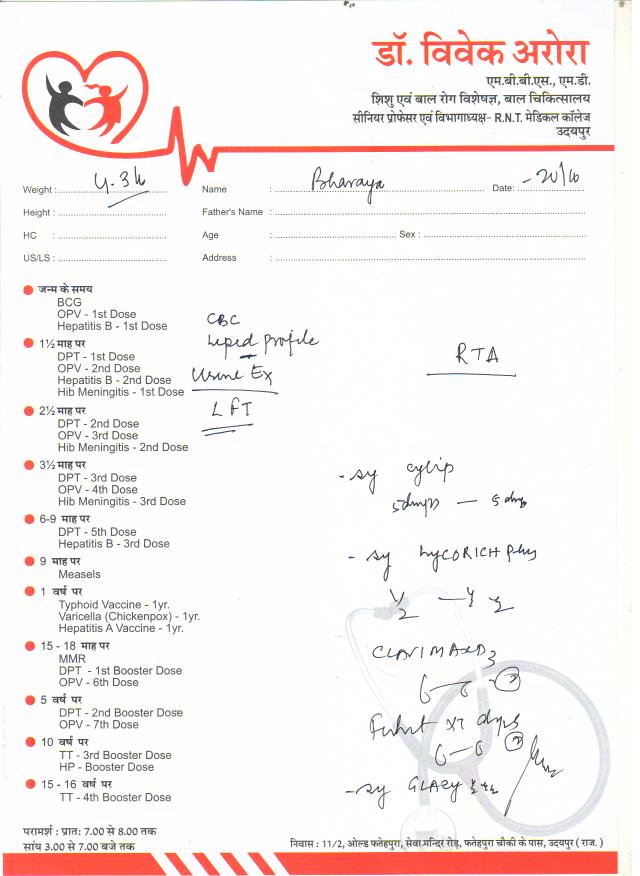 डॉ. विवेक अरोरा
एम.बी.बी.एस., एम.डी.
शिशु एवं बाल रोग विशेषज्ञ, बाल चिकित्सालय
सीनियर प्रोफेसर एवं विभागाध्यक्ष- R.N.T. मेडिकल कॉलेज
उदयपुर
Weight :
Name :
Date:
Height :
Father's Name :
HC :
Age : Sex :
US/LS :
Address :
जन्म के समय
BCG
OPV - 1st Dose
Hepatitis B - 1st Dose
1½ माह पर
DPT - 1st Dose
OPV - 2nd Dose
Hepatitis B - 2nd Dose
Hib Meningitis - 1st Dose
2½ माह पर
DPT - 2nd Dose
OPV - 3rd Dose
Hib Meningitis - 2nd Dose
3½ माह पर
DPT - 3rd Dose
OPV - 4th Dose
Hib Meningitis - 3rd Dose
6-9 माह पर
DPT - 5th Dose
Hepatitis B - 3rd Dose
9 माह पर
Measels
1 वर्ष पर
Typhoid Vaccine - 1yr.
Varicella (Chickenpox) - 1yr.
Hepatitis A Vaccine - 1yr.
15 - 18 माह पर
MMR
DPT - 1st Booster Dose
OPV - 6th Dose
5 वर्ष पर
DPT - 2nd Booster Dose
OPV - 7th Dose
10 वर्ष पर
TT - 3rd Booster Dose
HP - Booster Dose
15 - 16 वर्ष पर
TT - 4th Booster Dose
CBC
Lipid Profile
Urine Ex
LFT
RTA
- sy
- sy LYCORICH plus
- sy
परामर्श : प्रातः 7.00 से 8.00 तक
सांय 3.00 से 7.00 बजे तक
निवास : 11/2, ओल्ड फतेहपुरा, सेवा मन्दिर रोड़, फतेहपुरा चौकी के पास, उदयपुर ( राज. )